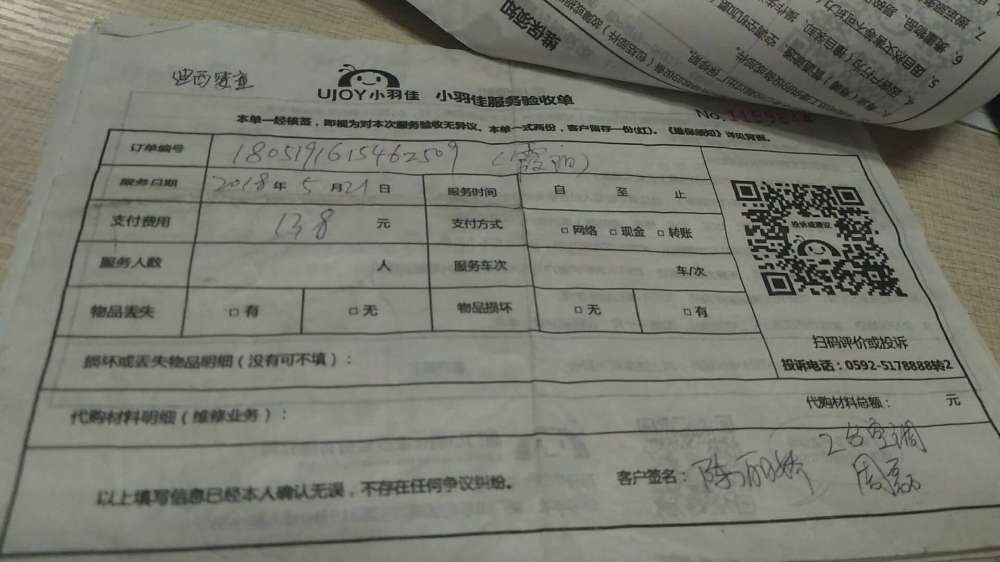 维保须知
UJOY小羽佳 小羽佳服务验收单
No.
本单一经核签，即视为对本次服务验收无异议。本单一式两份，客户留存一份(红)。《维保须知》详见背面。
订单编号 1805191615462509
服务日期 2018年5月21日 服务时间 自 至 止
支付费用 138 元 支付方式 □网络 □现金 □转账
服务人数 人 服务车次 车/次
物品丢失 □有 □无 物品损坏 □无 □有
投诉或建议
扫码评价或投诉
投诉电话：0592-5178888转2
损坏或丢失物品明细（没有可不填）：
代购材料明细（维修业务）： 代购材料总额： 元
2台空调
以上填写信息已经本人确认无误，不存在任何争议纠纷。 客户签名：陈丽娇 周磊